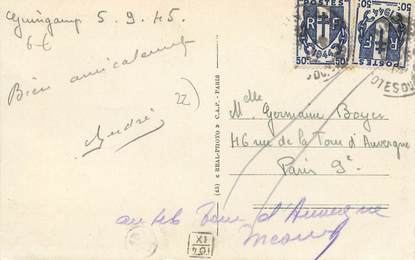 Guingamp 5.9.45.
6-E
Bien amicalement
22)
André
(45) « REAL-PHOTO » C.A.P. - PARIS
POSTES
RF
1944
50c
POSTES
RF
1944
50c
Melle Germaine Boyer
46 rue de la Tour d'Auvergne
Paris 9e.
au 46 Tour d'Auvergne
Inconnu
104
IX